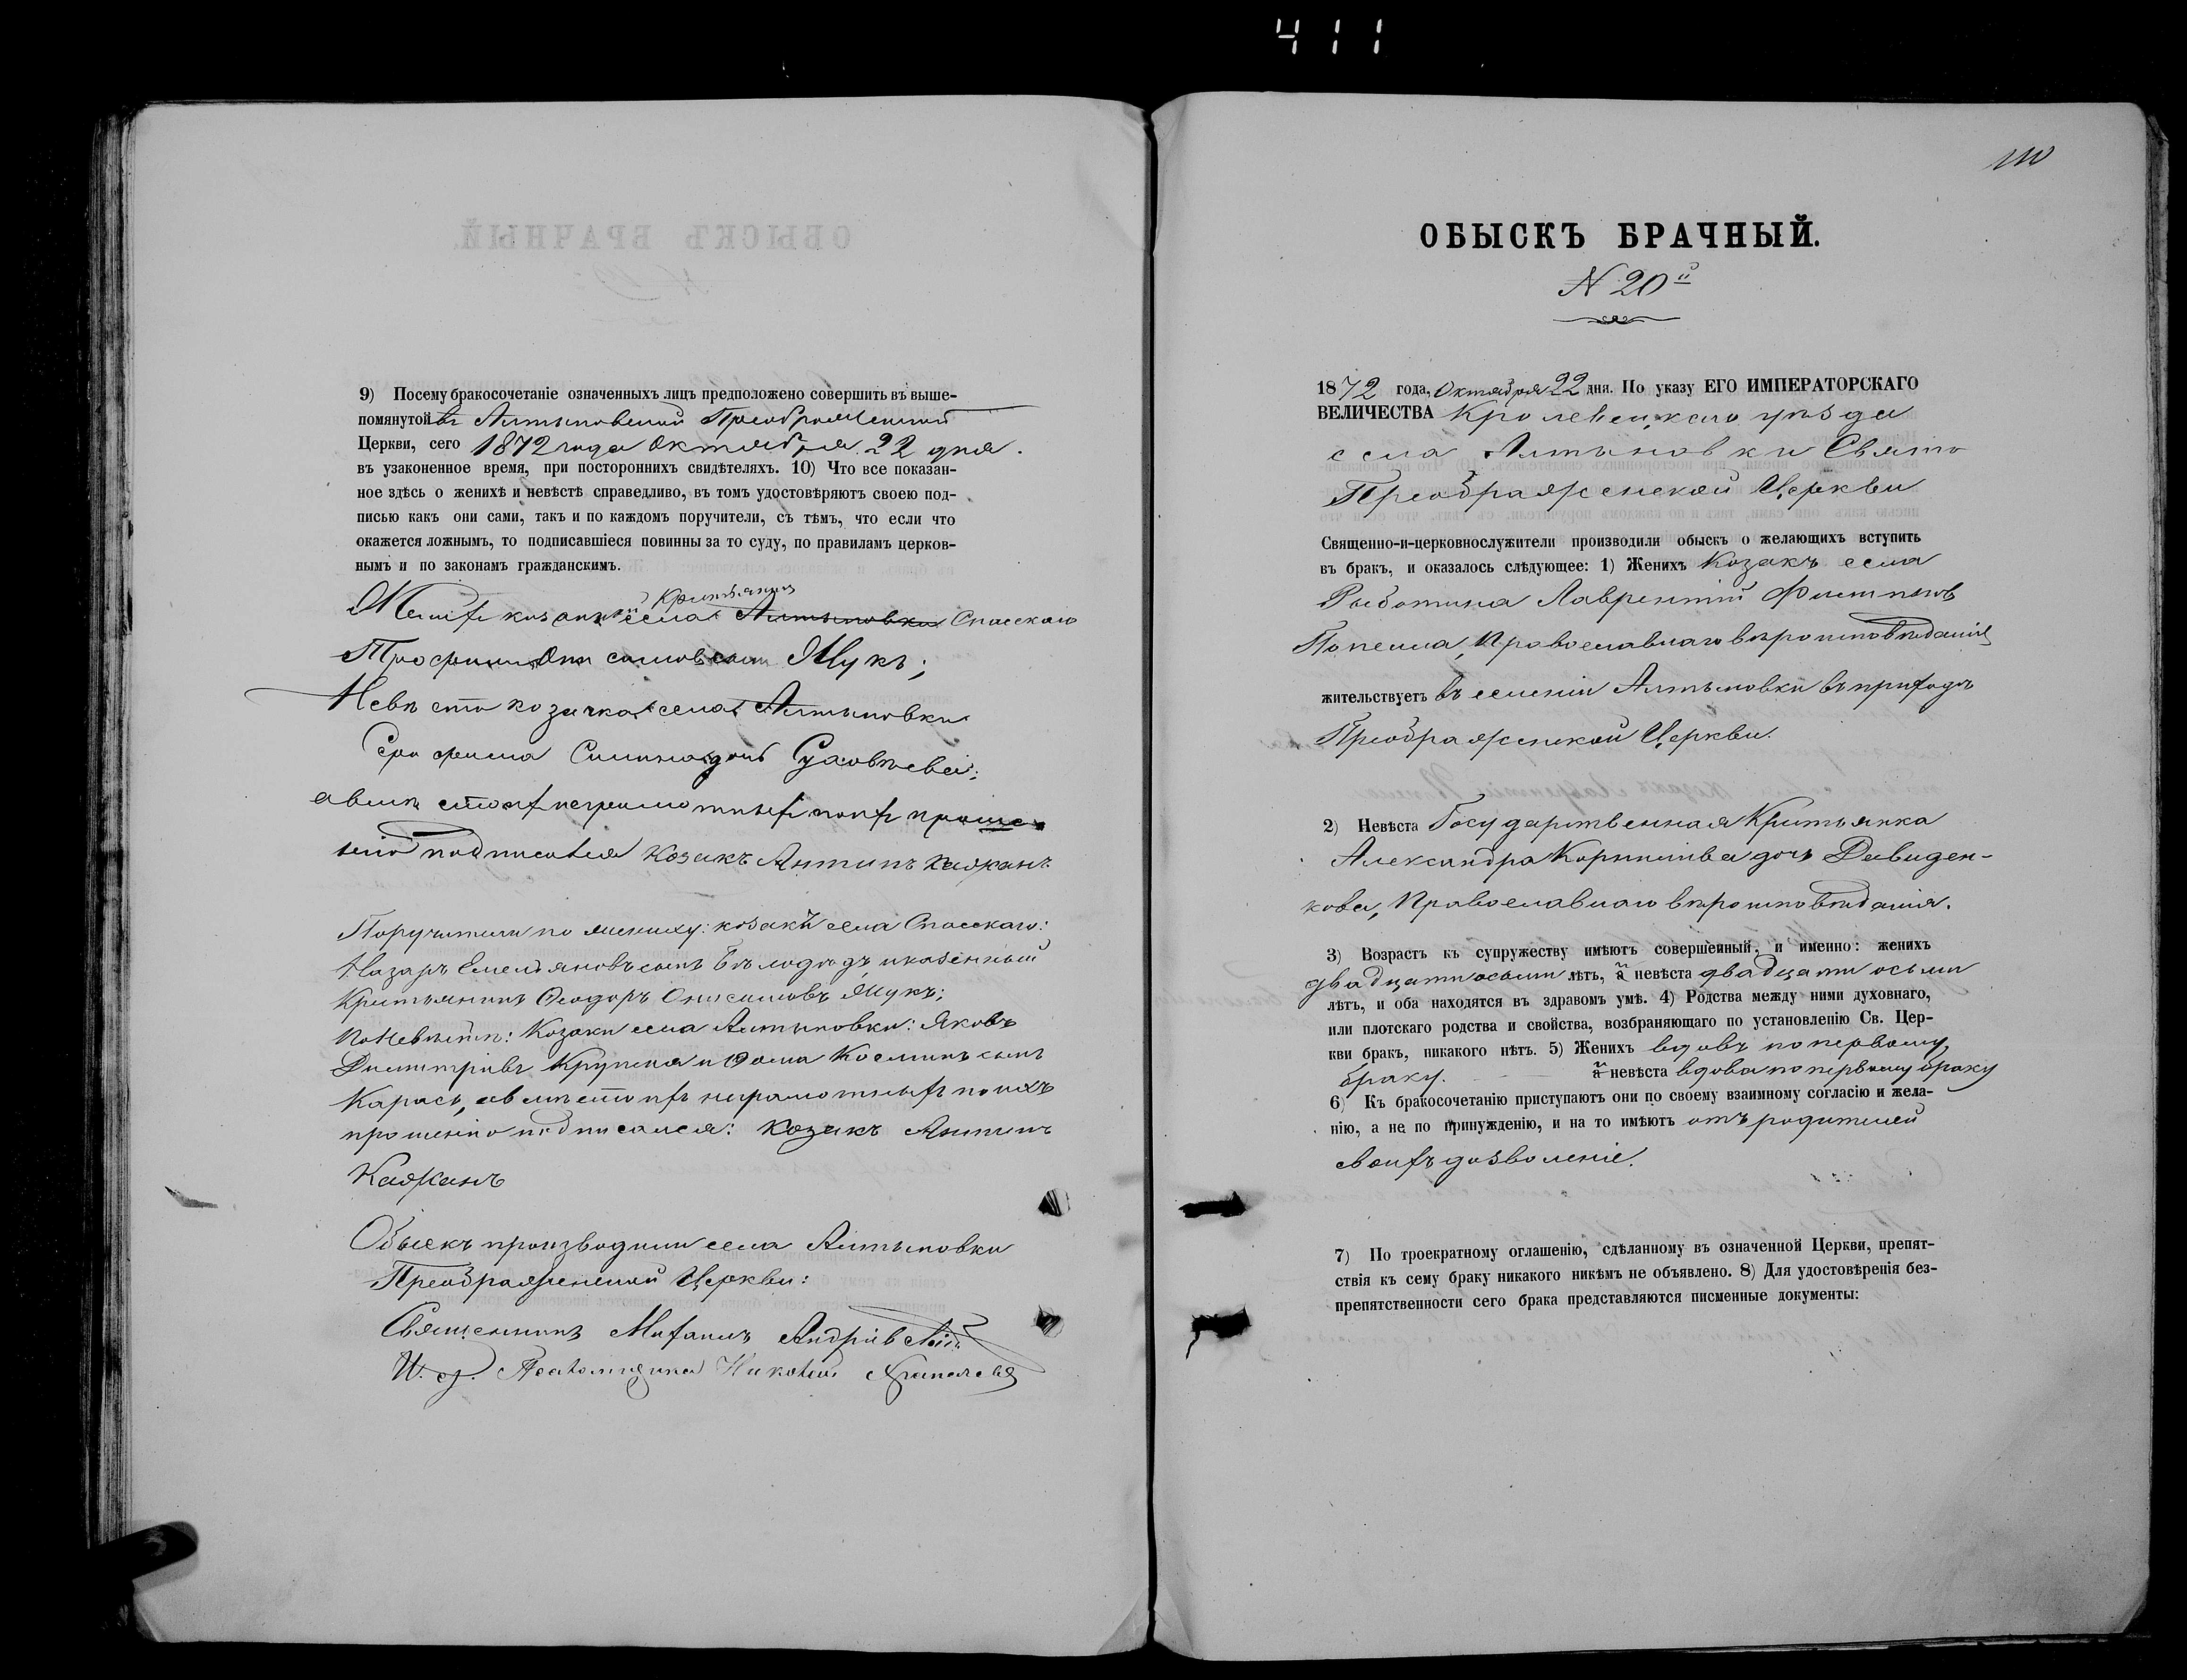 411
9) Посему бракосочетаніе означенныхъ лицъ предположено совершить въ выше-
помянутой въ Алтыновской Преображенской
Церкви, сего 1872 года Октября 22 дня.
въ узаконенное время, при постороннихъ свидѣтеляхъ. 10) Что все показан-
ное здѣсь о женихѣ и невѣстѣ справедливо, въ томъ удостовѣряютъ своею под-
писью какъ они сами, такъ и по каждомъ поручители, съ тѣмъ, что если что
окажется ложнымъ, то подписавшіеся повинны за то суду, по правиламъ церков-
нымъ и по законамъ гражданскимъ.
Крестьянинъ
Женихъ села Алтыновки Спасскаго
Жукъ;
Невѣста козачка села Алтыновки
дочь
неграмотныхъ по ихъ проше-
нію подписался Козакъ Антипъ Кажанъ
Поручители по жениху: козакъ села Спасскаго:
Назаръ Емельяновъ сынъ и казенный
Крестьянинъ Ѳеодоръ Онисимовъ Жукъ;
По Невѣстѣ: Козаки села Алтыновки: Яковъ
Димитріевъ и Ѳома Косминъ сынъ
Карась, а вмѣсто ихъ неграмотныхъ по ихъ
прошенію подписался: Козакъ Антипъ
Кажанъ
Обыскъ производили села Алтыновки
Преображенской Церкви:
Священникъ Михаилъ Андріевскій
И. д. Псаломщика Николай
110
ОБЫСКЪ БРАЧНЫЙ.
N 20й
1872 года, Октября 22 дня. По указу ЕГО ИМПЕРАТОРСКАГО
ВЕЛИЧЕСТВА Кролевецкаго уѣзда
села Алтыновки Свято
Преображенской Церкви
Священно-и-церковнослужители производили обыскъ о желающихъ вступить
въ бракъ, и оказалось слѣдующее: 1) Женихъ Козакъ села
Работина Лаврентій Филипповъ
Попелла, Православнаго вѣроисповѣданія
жительствуетъ въ селеніи Алтыновки въ приходѣ
Преображенской Церкви.
2) Невѣста Государственная Крестьянка
Александра Корнилiева дочь Давиден-
кова, Православнаго вѣроисповѣданія.
3) Возрастъ къ супружеству имѣютъ совершенный, и именно: женихъ
двадцати осьми лѣтъ, а невѣста двадцати осьми
лѣтъ, и оба находятся въ здравомъ умѣ. 4) Родства между ними духовнаго,
или плотскаго родства и свойства, возбраняющаго по установленію Св. Цер-
кви бракъ, никакого нѣтъ. 5) Женихъ вдовъ по первому
браку. а невѣста вдова по первому браку
6) Къ бракосочетанію приступаютъ они по своему взаимному согласію и жела-
нію, а не по принужденію, и на то имѣютъ отъ родителей
своихъ дозволеніе.
7) По троекратному оглашенію, сдѣланному въ означенной Церкви, препят-
ствія къ сему браку никакого никѣмъ не объявлено. 8) Для удостовѣренія без-
препятственности сего брака представляются писменные документы: